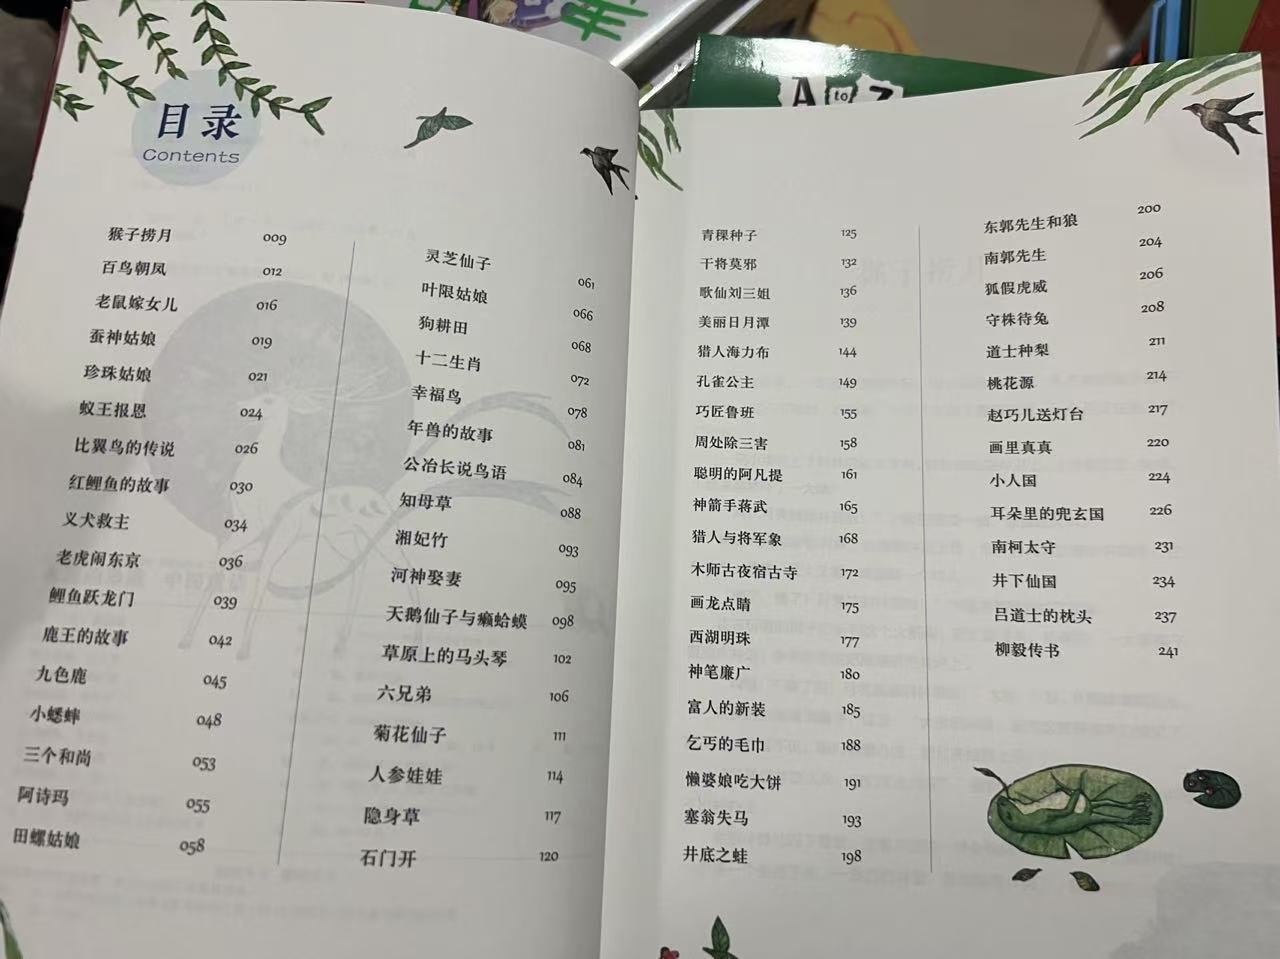 目录
Contents
猴子捞月 009
百鸟朝凤 012
老鼠嫁女儿 016
蚕神姑娘 019
珍珠姑娘 021
蚁王报恩 024
比翼鸟的传说 026
红鲤鱼的故事 030
义犬救主 034
老虎闹东京 036
鲤鱼跃龙门 039
鹿王的故事 042
九色鹿 045
小蟋蟀 048
三个和尚 053
阿诗玛 055
田螺姑娘 058
灵芝仙子 061
叶限姑娘 066
狗耕田 068
十二生肖 072
幸福鸟 078
年兽的故事 081
公冶长说鸟语 084
知母草 088
湘妃竹 093
河神娶妻 095
天鹅仙子与癞蛤蟆 098
草原上的马头琴 102
六兄弟 106
菊花仙子 111
人参娃娃 114
隐身草 117
石门开 120
A to Z
青稞种子 125
干将莫邪 132
歌仙刘三姐 136
美丽日月潭 139
猎人海力布 144
孔雀公主 149
巧匠鲁班 155
周处除三害 158
聪明的阿凡提 161
神箭手蒋武 165
猎人与将军象 168
木师古夜宿古寺 172
画龙点睛 175
西湖明珠 177
神笔廉广 180
富人的新装 185
乞丐的毛巾 188
懒婆娘吃大饼 191
塞翁失马 193
井底之蛙 198
东郭先生和狼 200
南郭先生 204
狐假虎威 206
守株待兔 208
道士种梨 211
桃花源 214
赵巧儿送灯台 217
画里真真 220
小人国 224
耳朵里的兜玄国 226
南柯太守 231
井下仙国 234
吕道士的枕头 237
柳毅传书 241